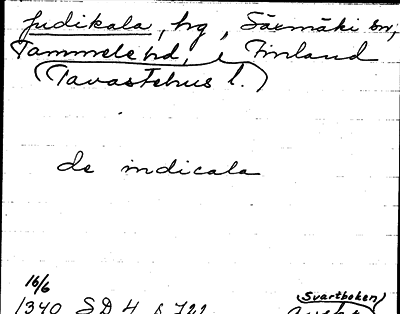 Judikala, hg, Säxmäki sn,
Tammela hd, Finland
(Tavastehus l.)
de indicala
16/6
1340 SD 4 s 722
(Svartboken)